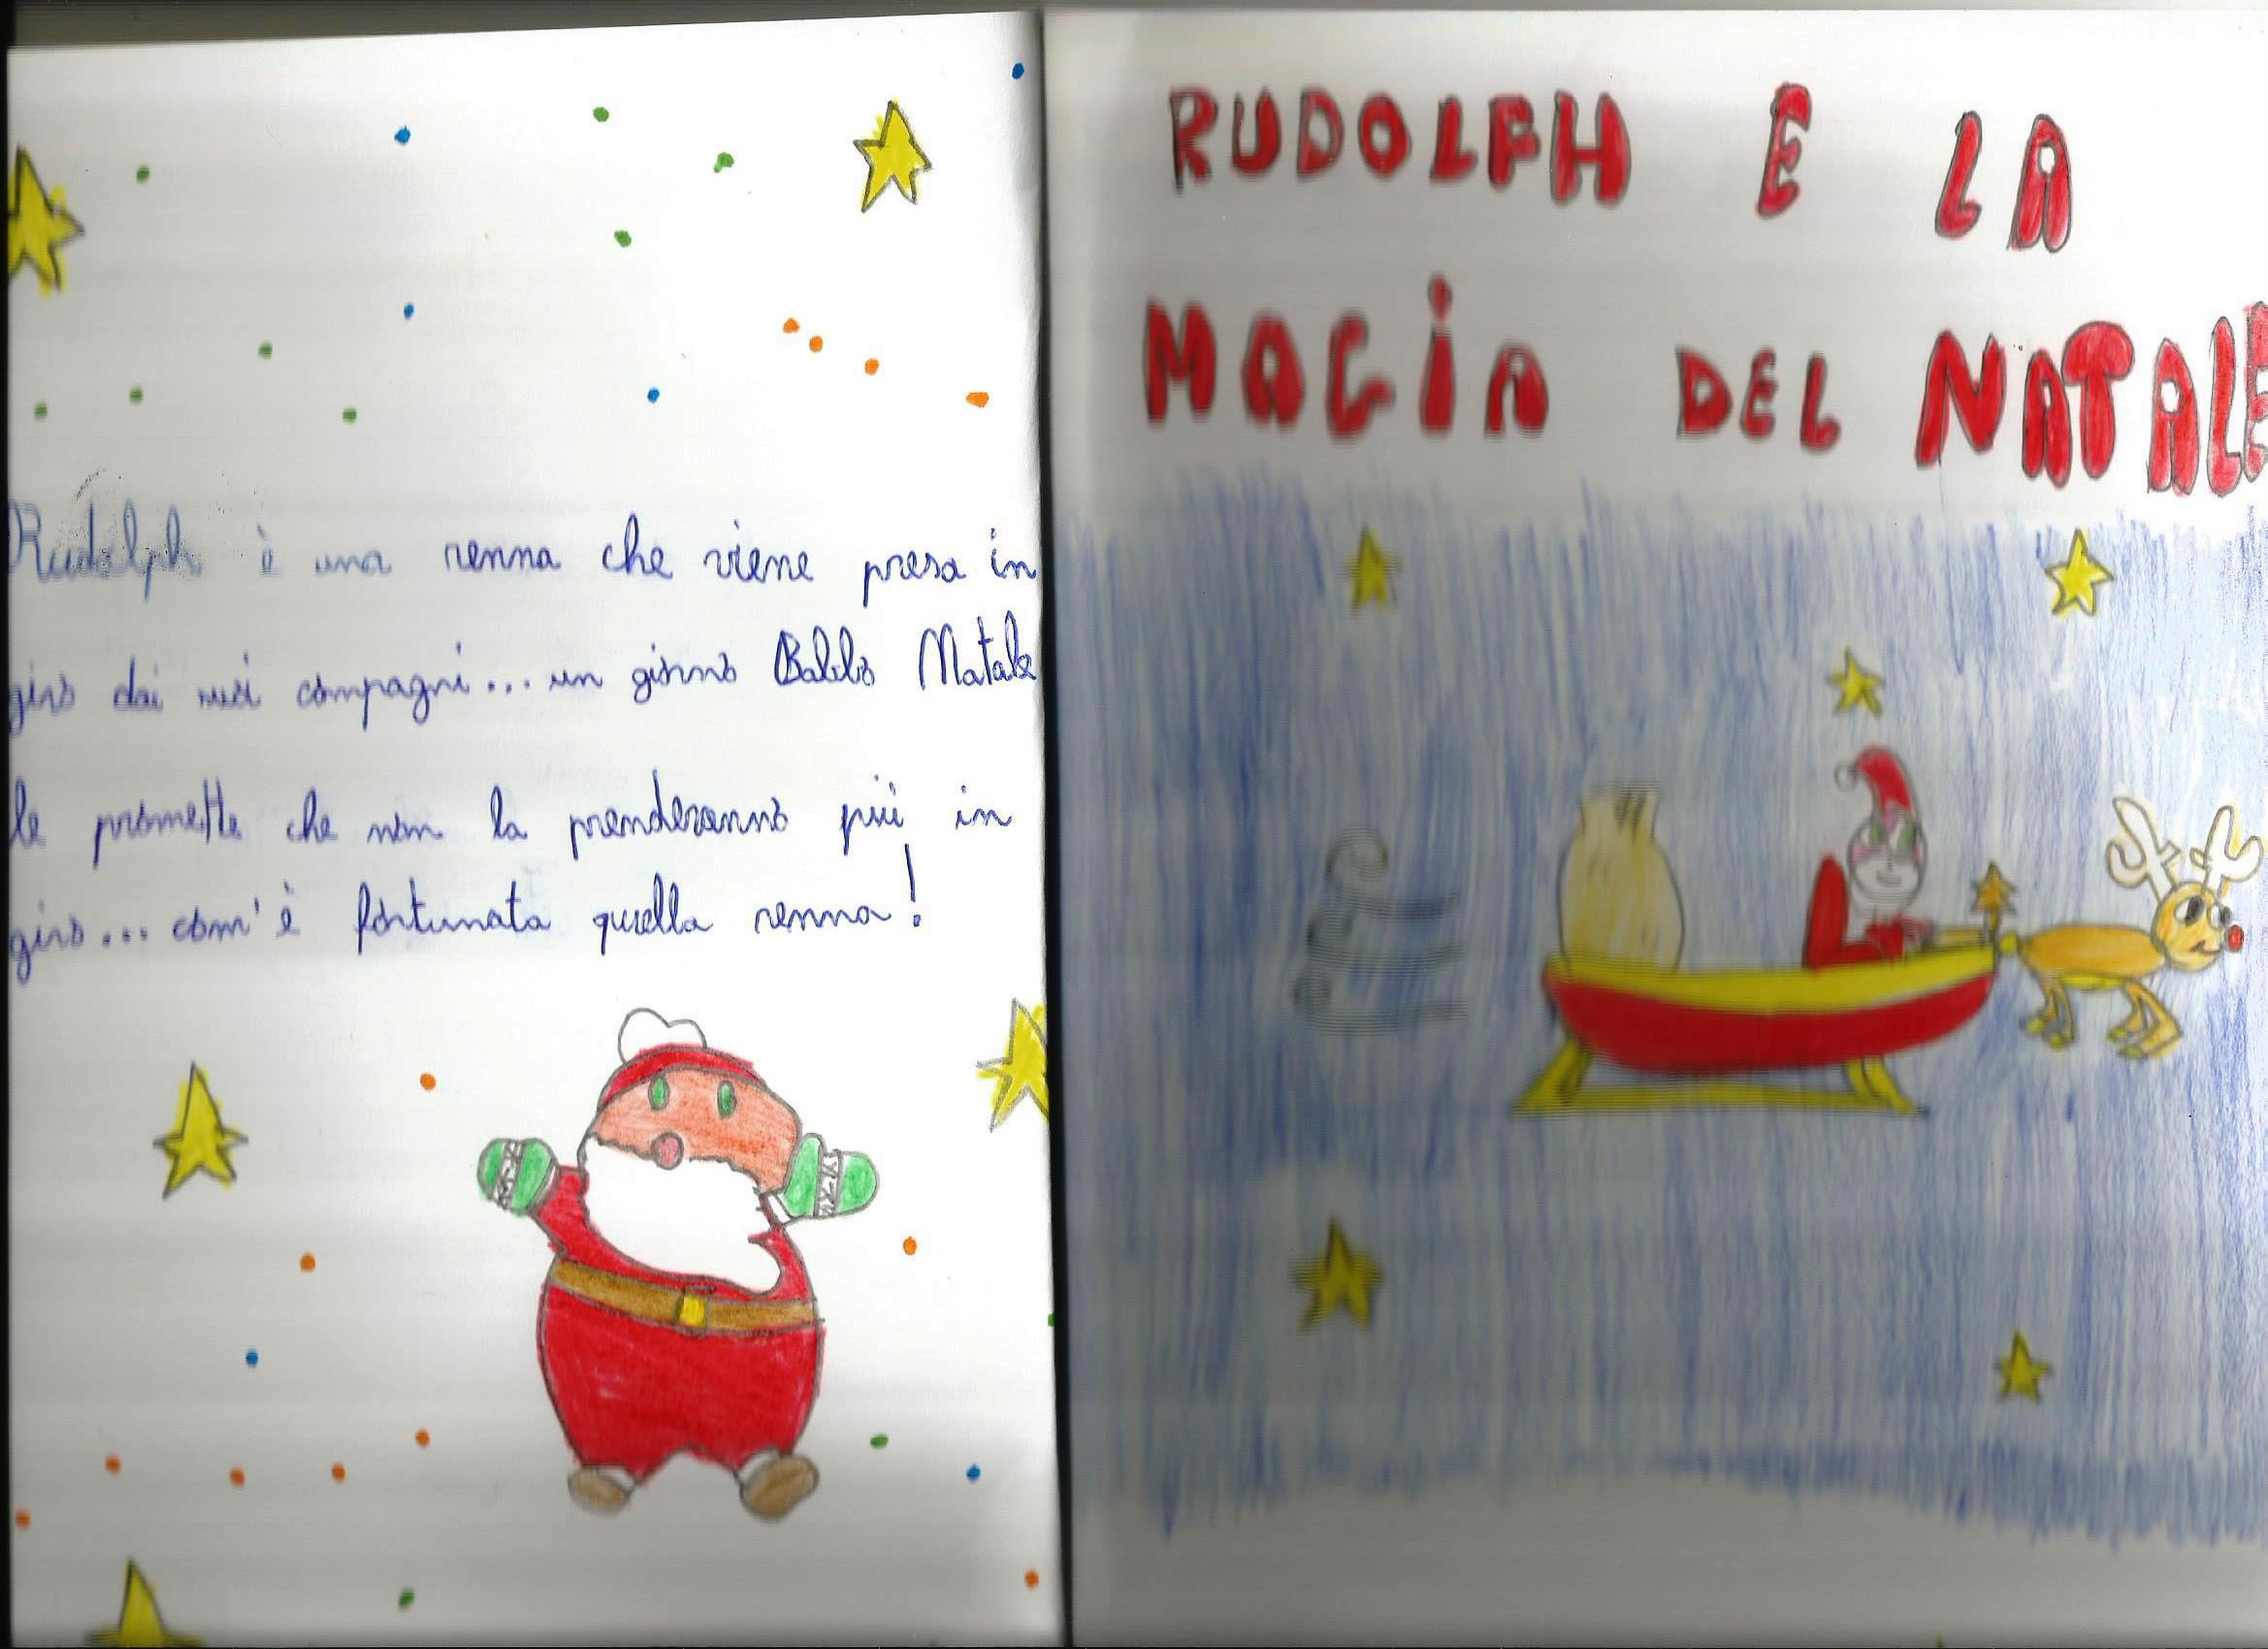 Rudolph è una renna che viene presa in
giro dai suoi compagni... un giorno Babbo Natale
le promette che non la prenderanno più in
giro... com'è fortunata quella renna!
RUDOLPH E LA
MAGIA DEL NATALE